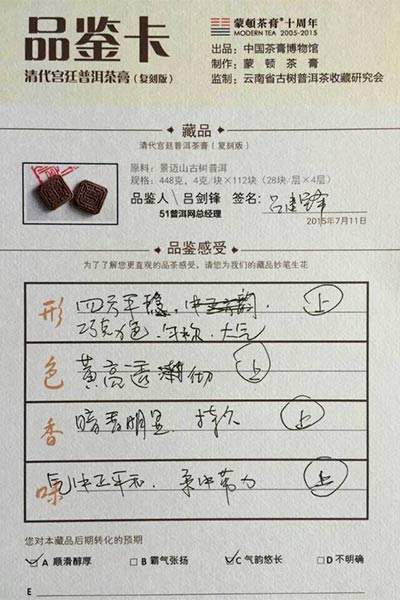 品鉴卡
清代宫廷普洱茶膏（复刻版）
蒙顿茶膏®十周年
MODERN TEA 2005-2015
出品：中国茶膏博物馆
制作：蒙 顿 茶 膏
监制：云南省古树普洱茶收藏研究会
藏品
清代宫廷普洱茶膏（复刻版）
原料：景迈山古树普洱
规格：448克，4克/块×112块（28块/层×4层）
品鉴人 吕剑锋 签名：吕建锋
51普洱网总经理
2015年7月11日
品鉴感受
为了了解您更直观的品茶感受，请您为我们的藏品妙笔生花
形 四方平稳，中 韵 上
巧克力色、匀称、大气
色 黄亮透 彻 上
香 暗香明显 持久 上
味 气中正平和 柔中带力 上
您对本藏品后期转化的预期
A 顺滑醇厚 B 霸气张扬 C 气韵悠长 D 不明确
E